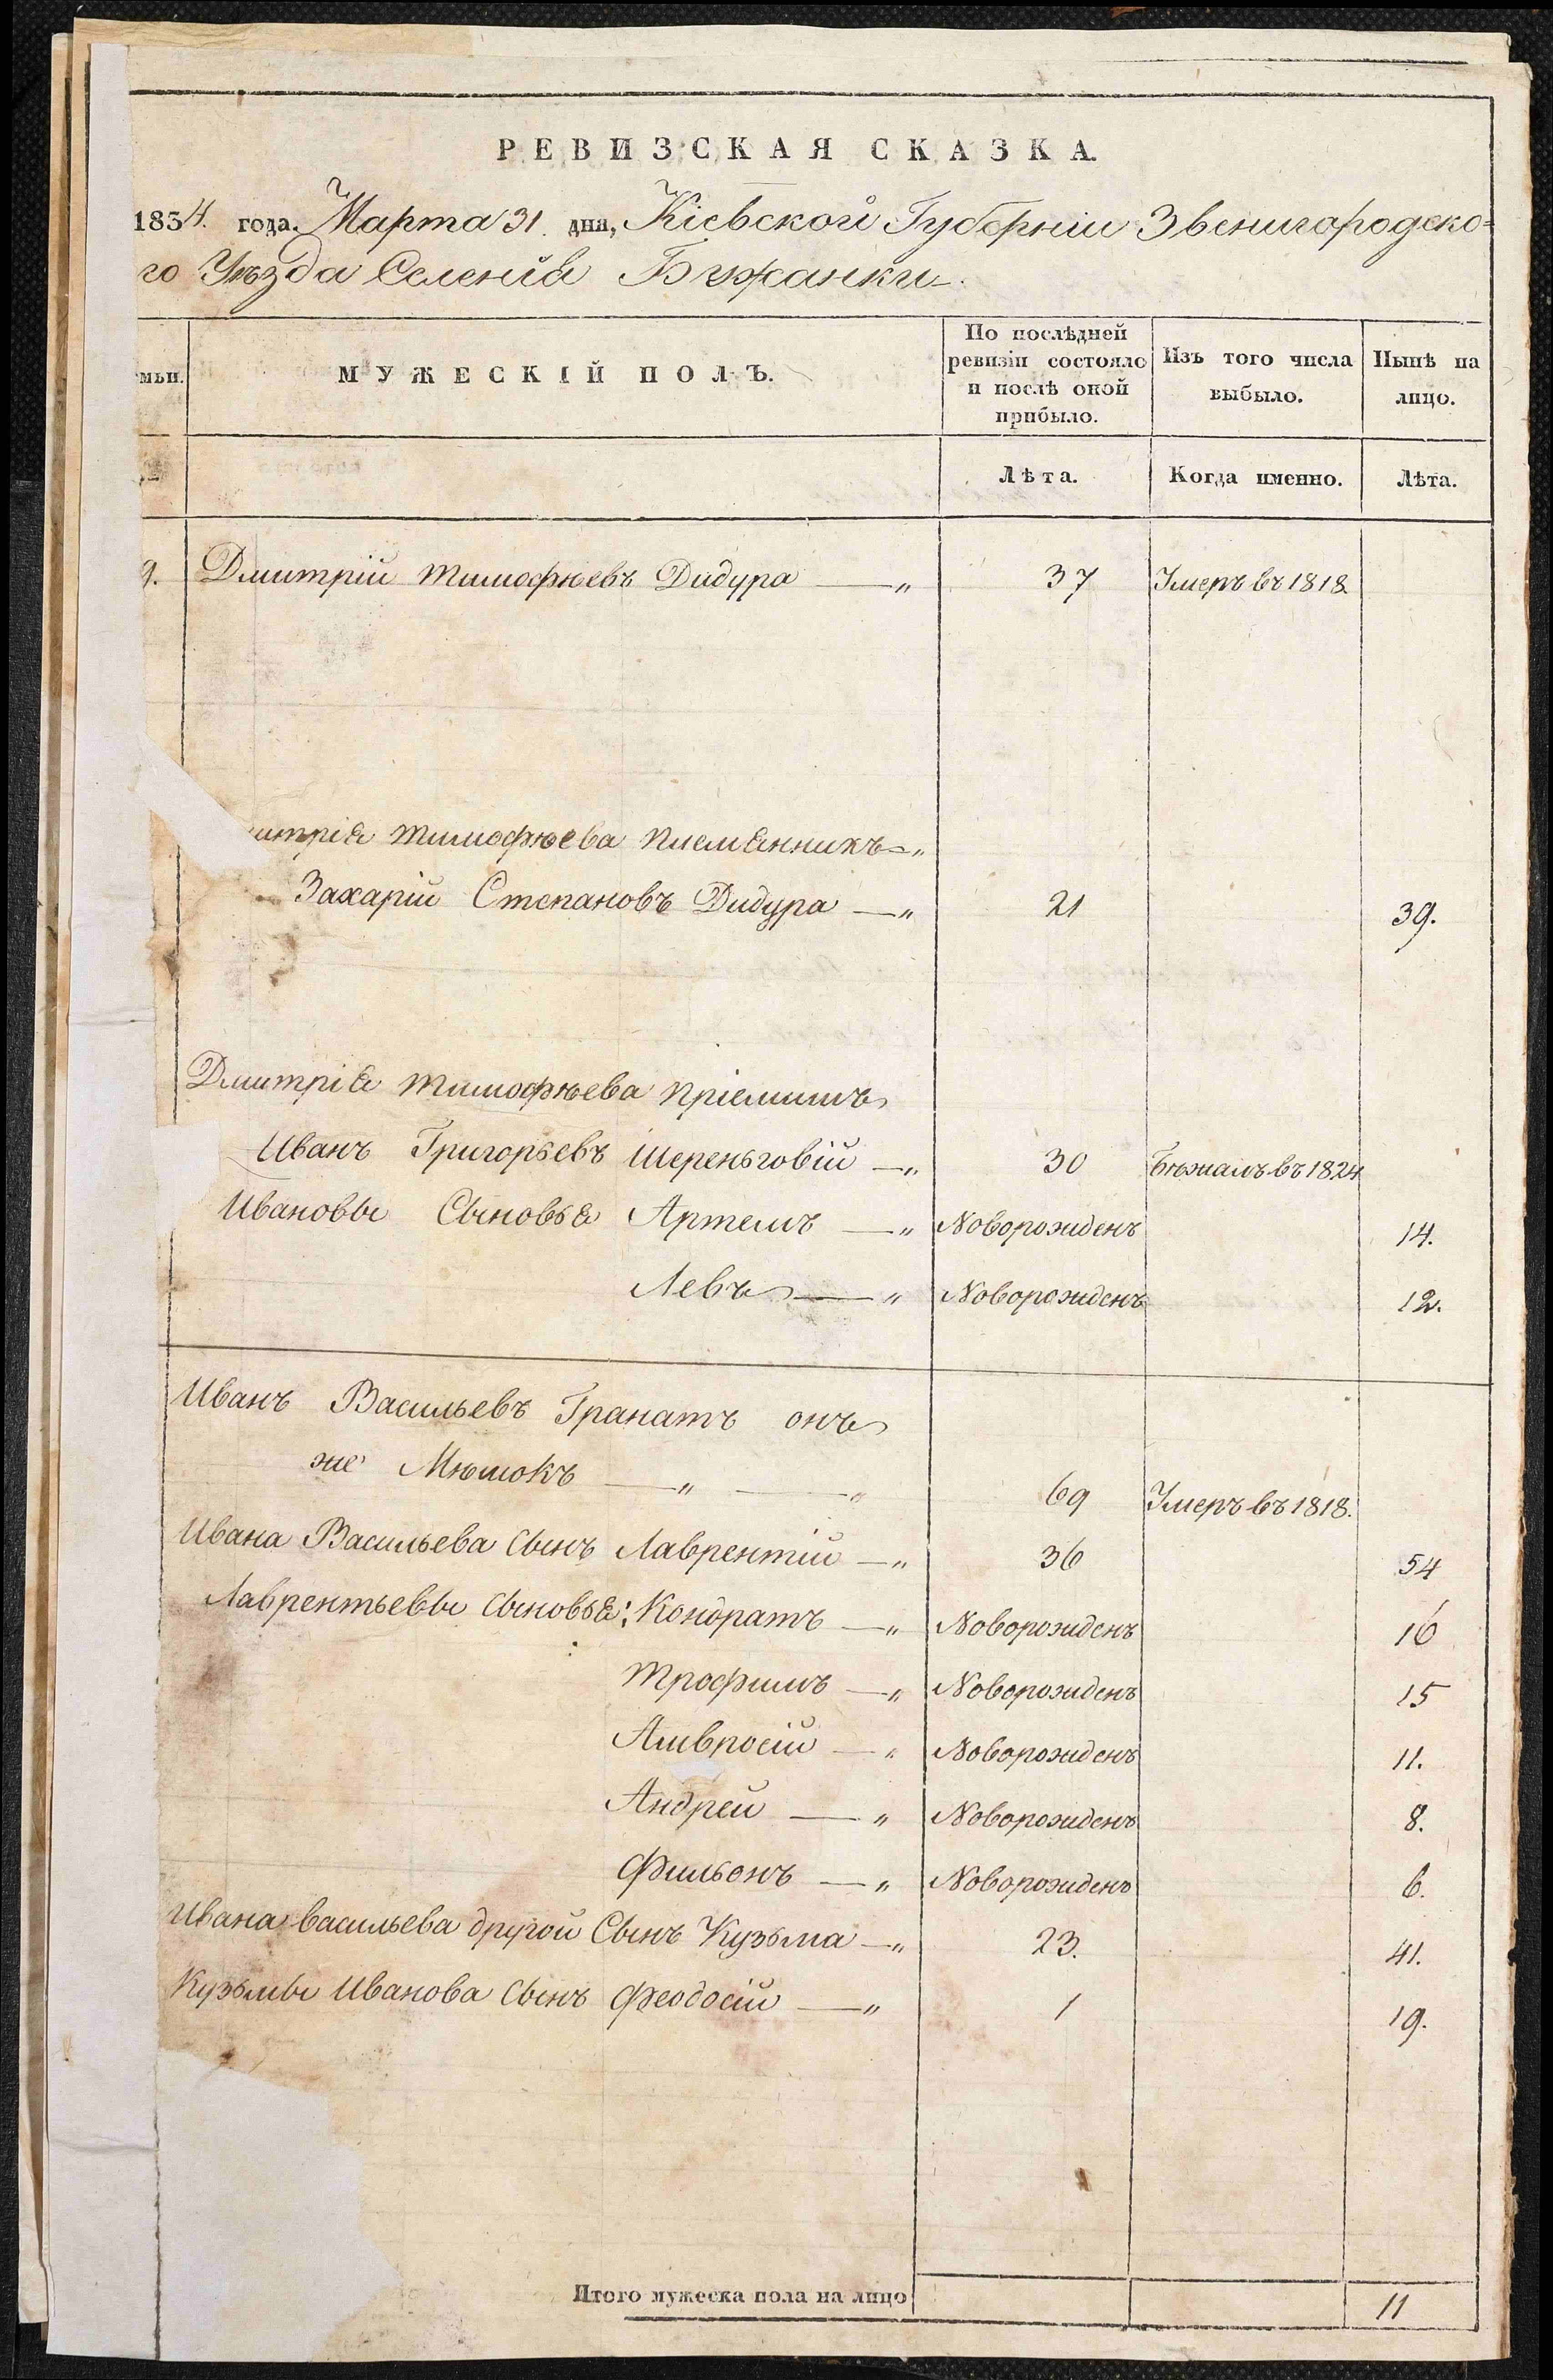 РЕВИЗСКАЯ СКАЗКА.
1834. года. Марта 31. дня, Кіевской Губерніи Звенигородско-
го Уѣзда Селенія Бужанки.
мьи. МУЖЕСКІЙ ПОЛЪ. По послѣдней ревизіи состояло и послѣ оной прибыло. Изъ того числа выбыло. Нынѣ на лицо.
Лѣта. Когда именно. Лѣта.
9. Дмитрій Тимофѣевъ Дидура — „ 37 Умеръ въ 1818.
итрія Тимофѣева племянникъ — „
Захарій Степановъ Дидура — „ 21 39.
Дмитрія Тимофѣева пріемышъ
Иванъ Григорьевъ Шереньговій — „ 30 Бѣжалъ въ 1824
Ивановы Сыновья Артемъ — „ Новорожденъ 14.
Левъ — „ Новорожденъ 12.
Иванъ Васильевъ Гранатъ онъ
же Мѣшокъ — „ — „ 69 Умеръ въ 1818.
Ивана Васильева сынъ Лаврентій — „ 36 54
Лаврентьевы сыновья: Кондратъ — „ Новорожденъ 16
Трофимъ — „ Новорожденъ 15
Амвросій — „ Новорожденъ 11.
Андрей — „ Новорожденъ 8.
Фильонъ — „ Новорожденъ 6.
Ивана Васильева другой Сынъ Кузьма — „ 23. 41.
Кузьмы Иванова Сынъ Феодосій — „ 1 19.
Итого мужеска пола на лицо 11